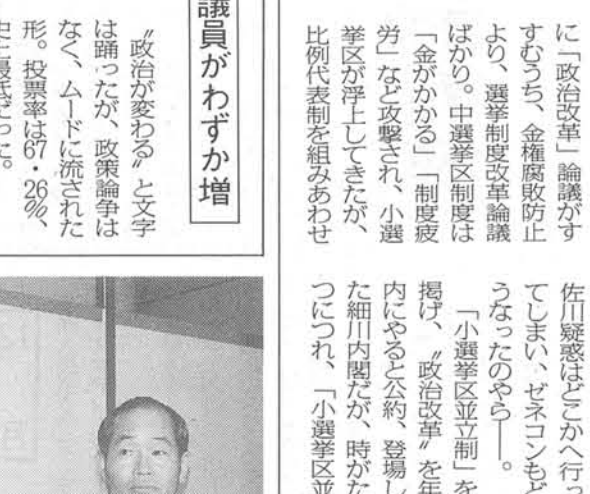 に「政治改革」論議がす
すむうち、金権腐敗防止
より、選挙制度改革論議
ばかり。中選挙区制度は
「金がかかる」「制度疲
労」など攻撃され、小選
挙区が浮上してきたが、
比例代表制を組みあわせ
佐川疑惑はどこかへ行っ
てしまい、ゼネコンもど
うなったのやら――。
「小選挙区並立制」を
掲げ、〝政治改革〟を年
内にやると公約、登場し
た細川内閣だが、時がた
つにつれ、「小選挙区並
議員がわずか増
〝政治が変わる〟と文字
は踊ったが、政策論争は
なく、ムードに流された
形。投票率は67・26%、
史上最低だった。